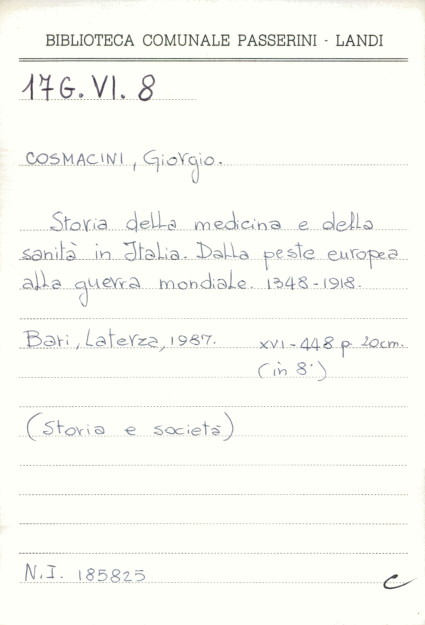 BIBLIOTECA COMUNALE PASSERINI - LANDI
17G. VI. 8
COSMACINI, Giorgio.
Storia della medicina e della
sanità in Italia. Dalla peste europea
alla guerra mondiale. 1348-1918.
Bari, Laterza, 1987. XVI-448 p. 20cm.
(in 8°)
(Storia e società)
N.I. 185825 C